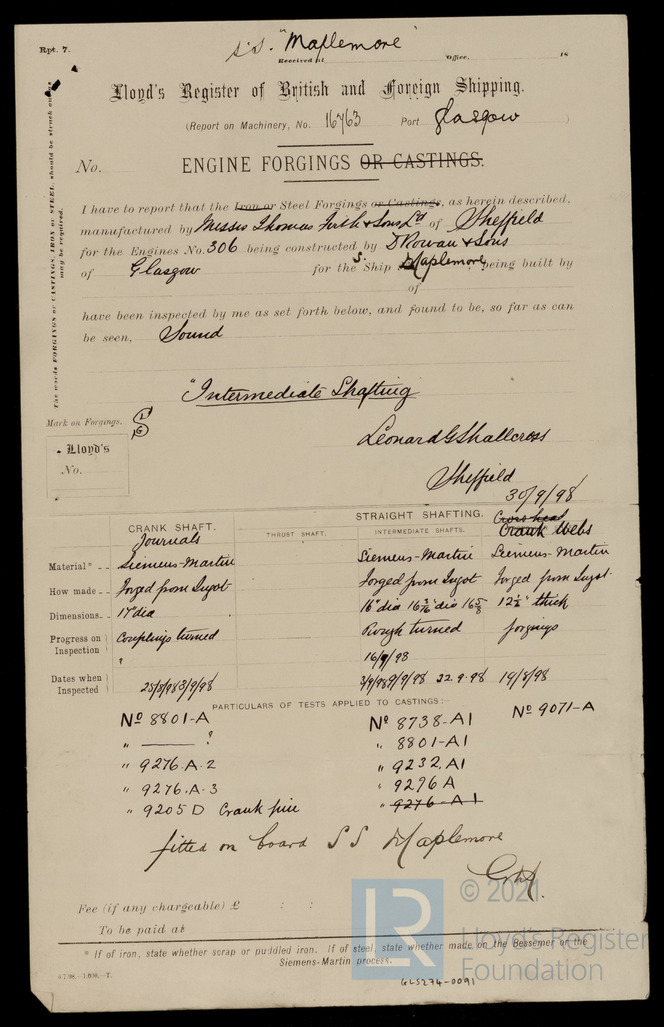 Rpt. 7.
S.S. "Maplemore"
Received at Office. 18
Lloyd's Register of British and Foreign Shipping.
(Report on Machinery, No. 16763 Port Glasgow )
No. ENGINE FORGINGS OR CASTINGS.
I have to report that the Iron or Steel Forgings or Castings, as herein described,
manufactured by Messrs Thomas Firth & Sons Ld of Sheffield
for the Engines No. 306 being constructed by D Rowan & Sons
of Glasgow for the S. Ship Maplemore being built by
of
have been inspected by me as set forth below, and found to be, so far as can
be seen, Sound
The words FORGINGS or CASTINGS, IRON or STEEL, should be struck out as
may be required.
"Intermediate Shafting
Mark on Forgings.
Lloyd's
No.
Leonard G Shallcross
Sheffield
30/9/98
CRANK SHAFT. THRUST SHAFT. STRAIGHT SHAFTING. INTERMEDIATE SHAFTS. Cross head
Journals Crank Webs
Material* Siemens-Martin Siemens-Martin Siemens-Martin
How made Forged from Ingot Forged from Ingot Forged from Ingot
Dimensions 17" dia 16" dia 16 5/16" dia 16 5/8 12 1/2" thick
Progress on Inspection Couplings turned Rough turned forgings
?
16/9/98
Dates when Inspected 25/8/98 3/9/98 3/9/98 9/9/98 22.9.98 19/8/98
PARTICULARS OF TESTS APPLIED TO CASTINGS:—
No 8801-A No 8738-A1 No 9071-A
" ——— ? " 8801-A1
" 9276.A.2 " 9232.A1
" 9276.A.3 " 9276 A
" 9205 D Crank pin " 9276-A1
fitted on board S S Maplemore
Fee (if any chargeable) £ : :
To be paid at
* If of iron, state whether scrap or puddled iron. If of steel, state whether made on the Bessemer or the
Siemens-Martin process.
GLS274-0091
LR
© 2021
Lloyd's Register
Foundation